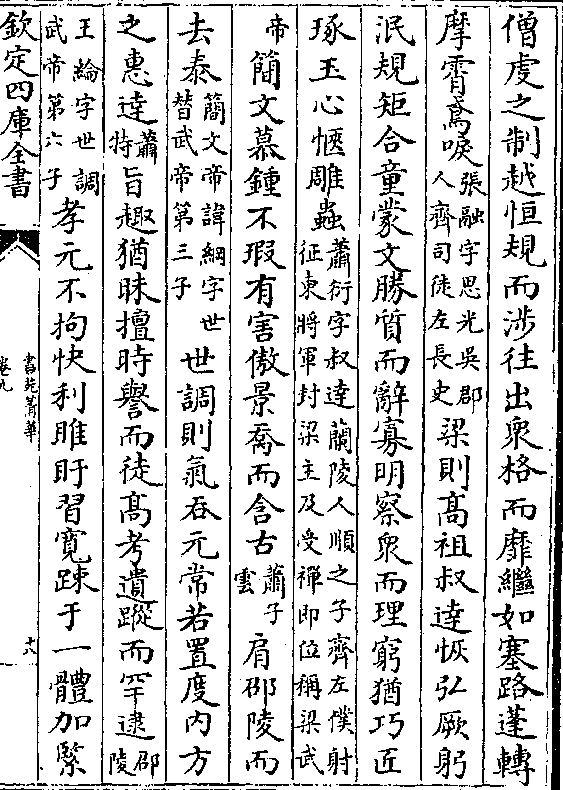 僧虔之制越恒規而涉往出衆格而靡繼如塞路蓬轉
摩霄鳶唳張融字思光吳郡人齊司徒左長史梁則髙祖叔逹恢弘厥躬
泯規矩合童蒙文勝質而辭寡明察衆而理窮猶巧匠
琢玉心愜雕蟲蕭衍字叔逹蘭陵人順之子齊左僕射征東將軍封梁主及受禪即位稱梁武
帝簡文慕鍾不瑕有害傲景喬而含古蕭子雲肩邵陵而
去泰簡文帝諱綱字世替武帝第三子世調則氣吞元常若置度内方
之惠逹蕭特旨趣猶昧擅時譽而徒髙考遺蹤而罕逮邵陵
王綸字世調武帝第六子孝元不拘快利睢盱習寛踈于一體加緊
欽定四庫全書
書苑菁華
卷九
十八